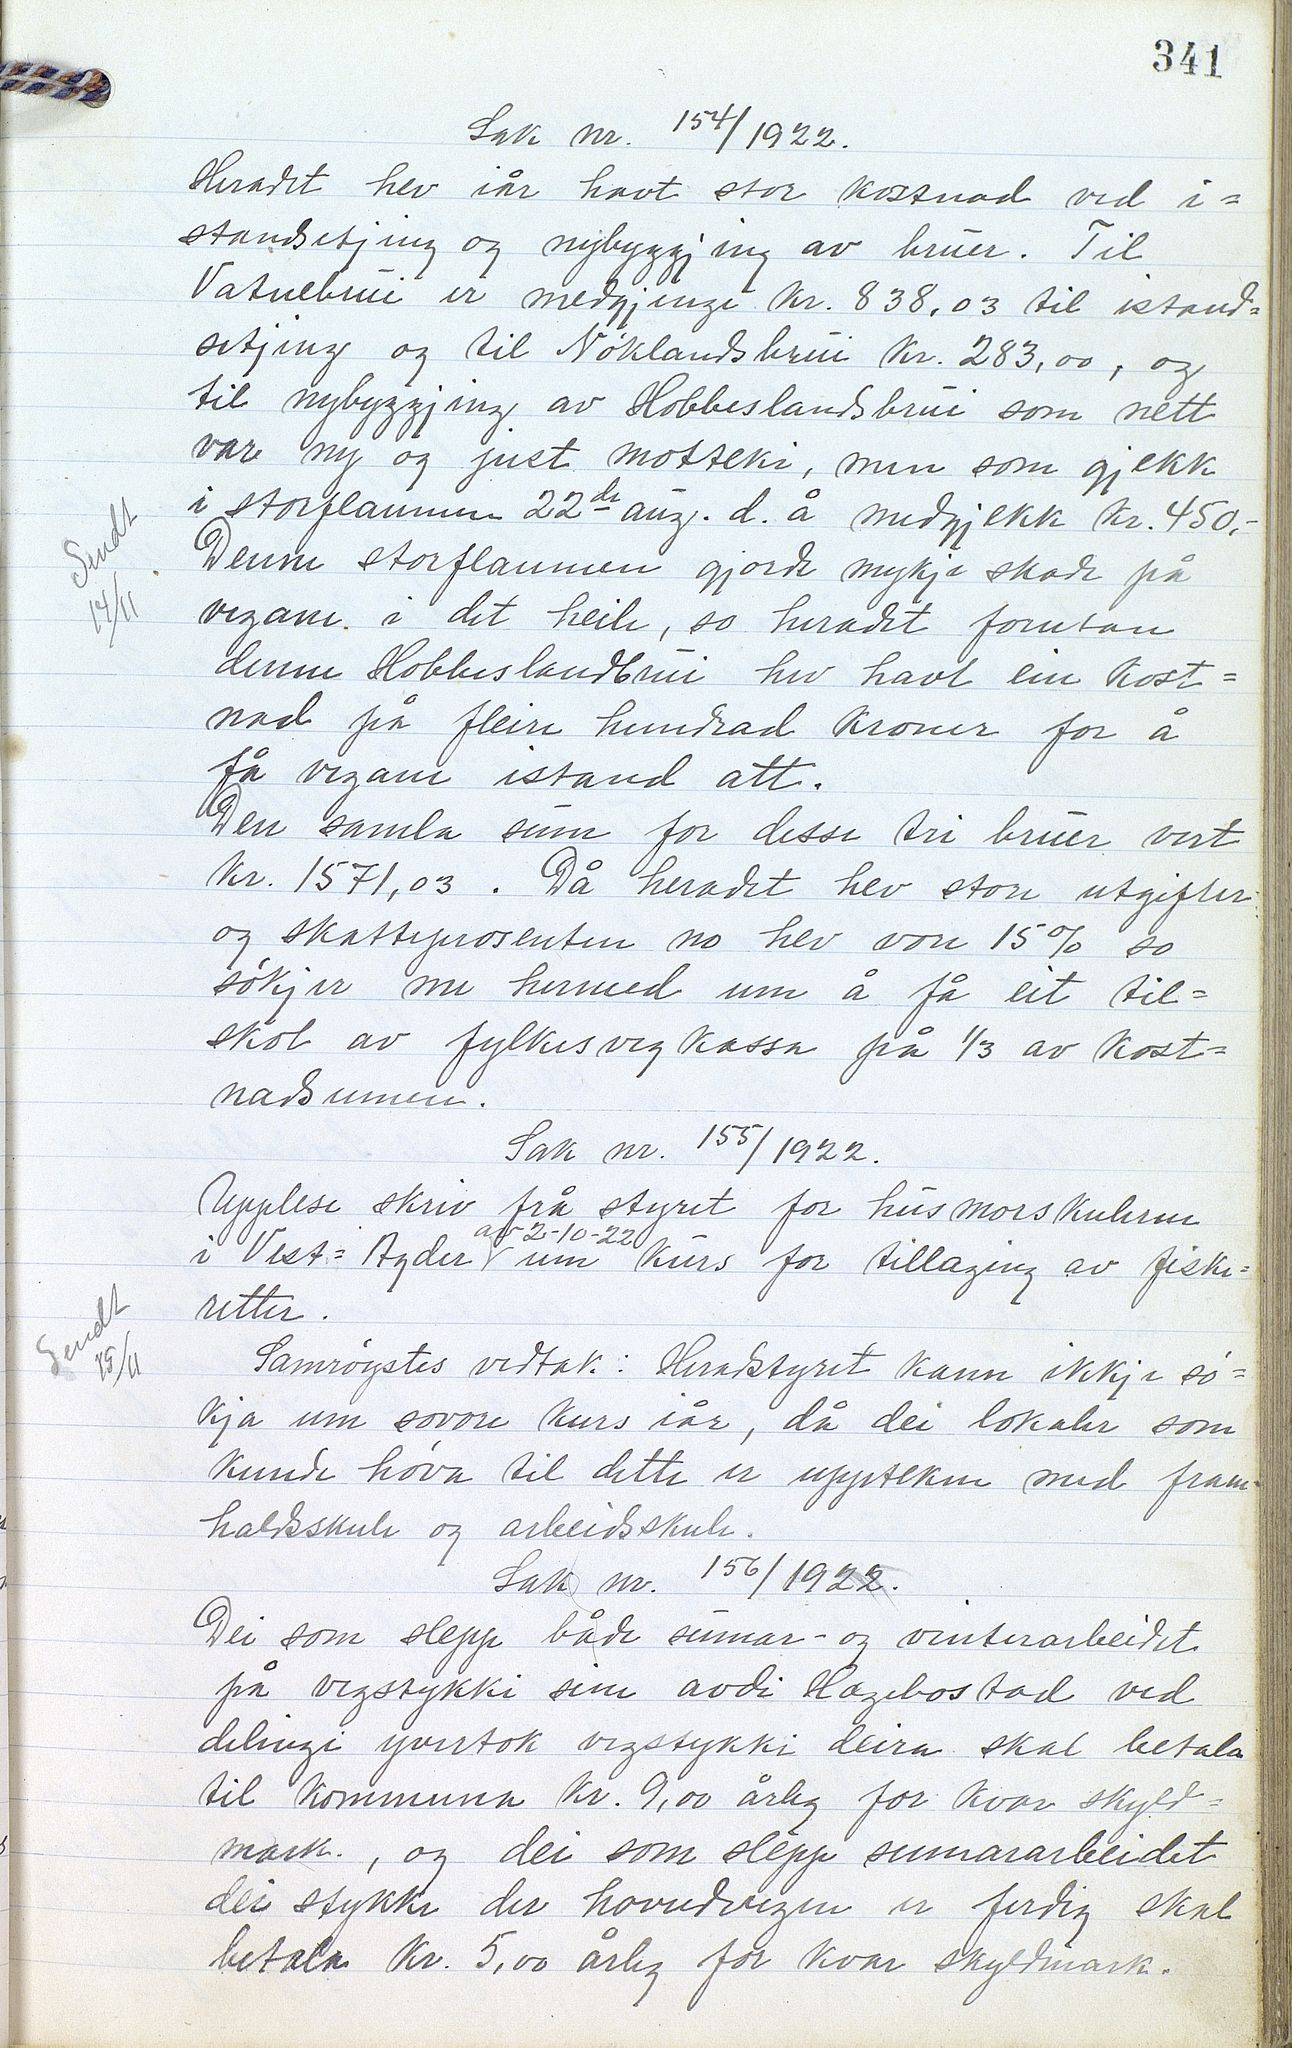 341
Sak nr. 154/1922.
Heradet hev iår havt stor kostnad ved i=
standsetjing og nybyggjing av bruer. Til
Vatnebrui er medgjengi kr. 838,03 til istand=
setjing og til Nöklandsbrui kr. 283,00, og
til nybyggjing av Hobbeslandsbrui som nett
var ny og just motteki, men som gjekk
i storflaumen 22de aug. d. å medgjekk kr. 450,-
Sendt
14/11
Denne storflaumen gjorde mykje skade på
vegane i det heile, so heradet forutan
denne Hobbeslandbrui hev havt ein kost=
nad på fleire hundrad kroner for å
få vegane istand att.
Den samla sum for desse tri bruer vert
kr. 1571,03. Då heradet hev store utgifter
og skatteprosenten no hev vore 15% so
sökjer me hermed um å få eit til=
skot av fylkesvegkassa på 1/3 av kost=
nadsumen.
Sak nr. 155/1922.
Upplese skriv frå styret for husmorskulerne
i Vest=Agder av 2-10-22 um kurs for tillaging av fiske=
retter.
Sendt
15/11
Samröystes vedtak: Heradstyret kann ikkje sö=
kja um sovore kurs iår, då dei lokaler som
kunde höva til dette er upptekne med fram-
haldsskule og arbeidsskule.
Sak nr. 156/1922.
Dei som slepp både sumar- og vinterarbeidet
på vegstykki sine avdi Hægebostad ved
delingi yvertok vegstykki deira skal betala
til kommuna kr. 9,00 årleg for kvar skyld=
mark., og dei som slepp sumararbeidet
dei stykke der hovudvegen er ferdig skal
betala kr. 5,00 årleg for kvar skyldmark.